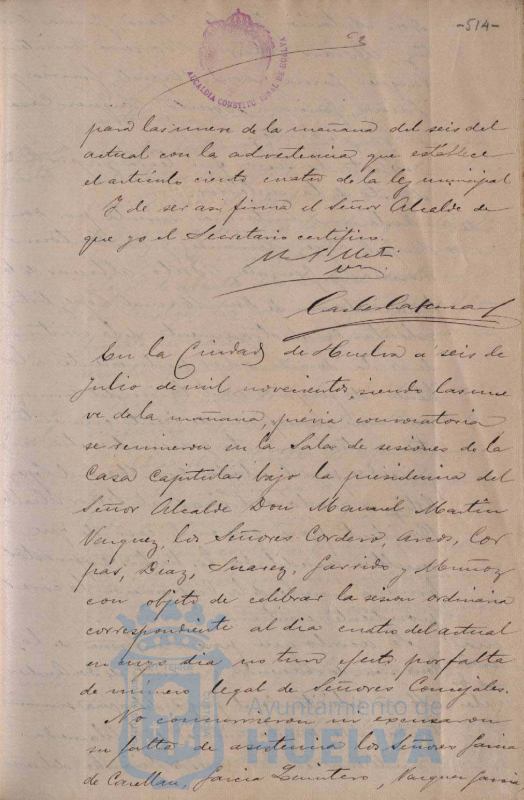 -514-
ALCALDÍA CONSTITUCIONAL DE HUELVA
para las nueve de la mañana del seis del
actual con la advertencia que establece
el artículo ciento cuatro de la ley municipal
Y de ser así firma el Señor Alcalde de
que yo el Secretario certifico.
En la Ciudad de Huelva á seis de
Julio de mil novecientos, siendo las nue
ve de la mañana, prévia convocatoria
se reunieron en la Sala de sesiones de la
Casa Capitular bajo la presidencia del
Señor Alcalde Don Manuel Martín
Vazquez, los Señores Cordero, Arcos, Cor
pas, Diaz, Suarez, Garrido y Muñoz
con objeto de celebrar la sesion ordinaria
correspondiente al dia cuatro del actual
en cuyo dia no tuvo efecto por falta
de número legal de Señores Concejales.
No concurrieron ni excusaron
su falta de asistencia los Señores Garcia
de Garcia Quintero, Vazquez Garcia
Ayuntamiento de
HUELVA